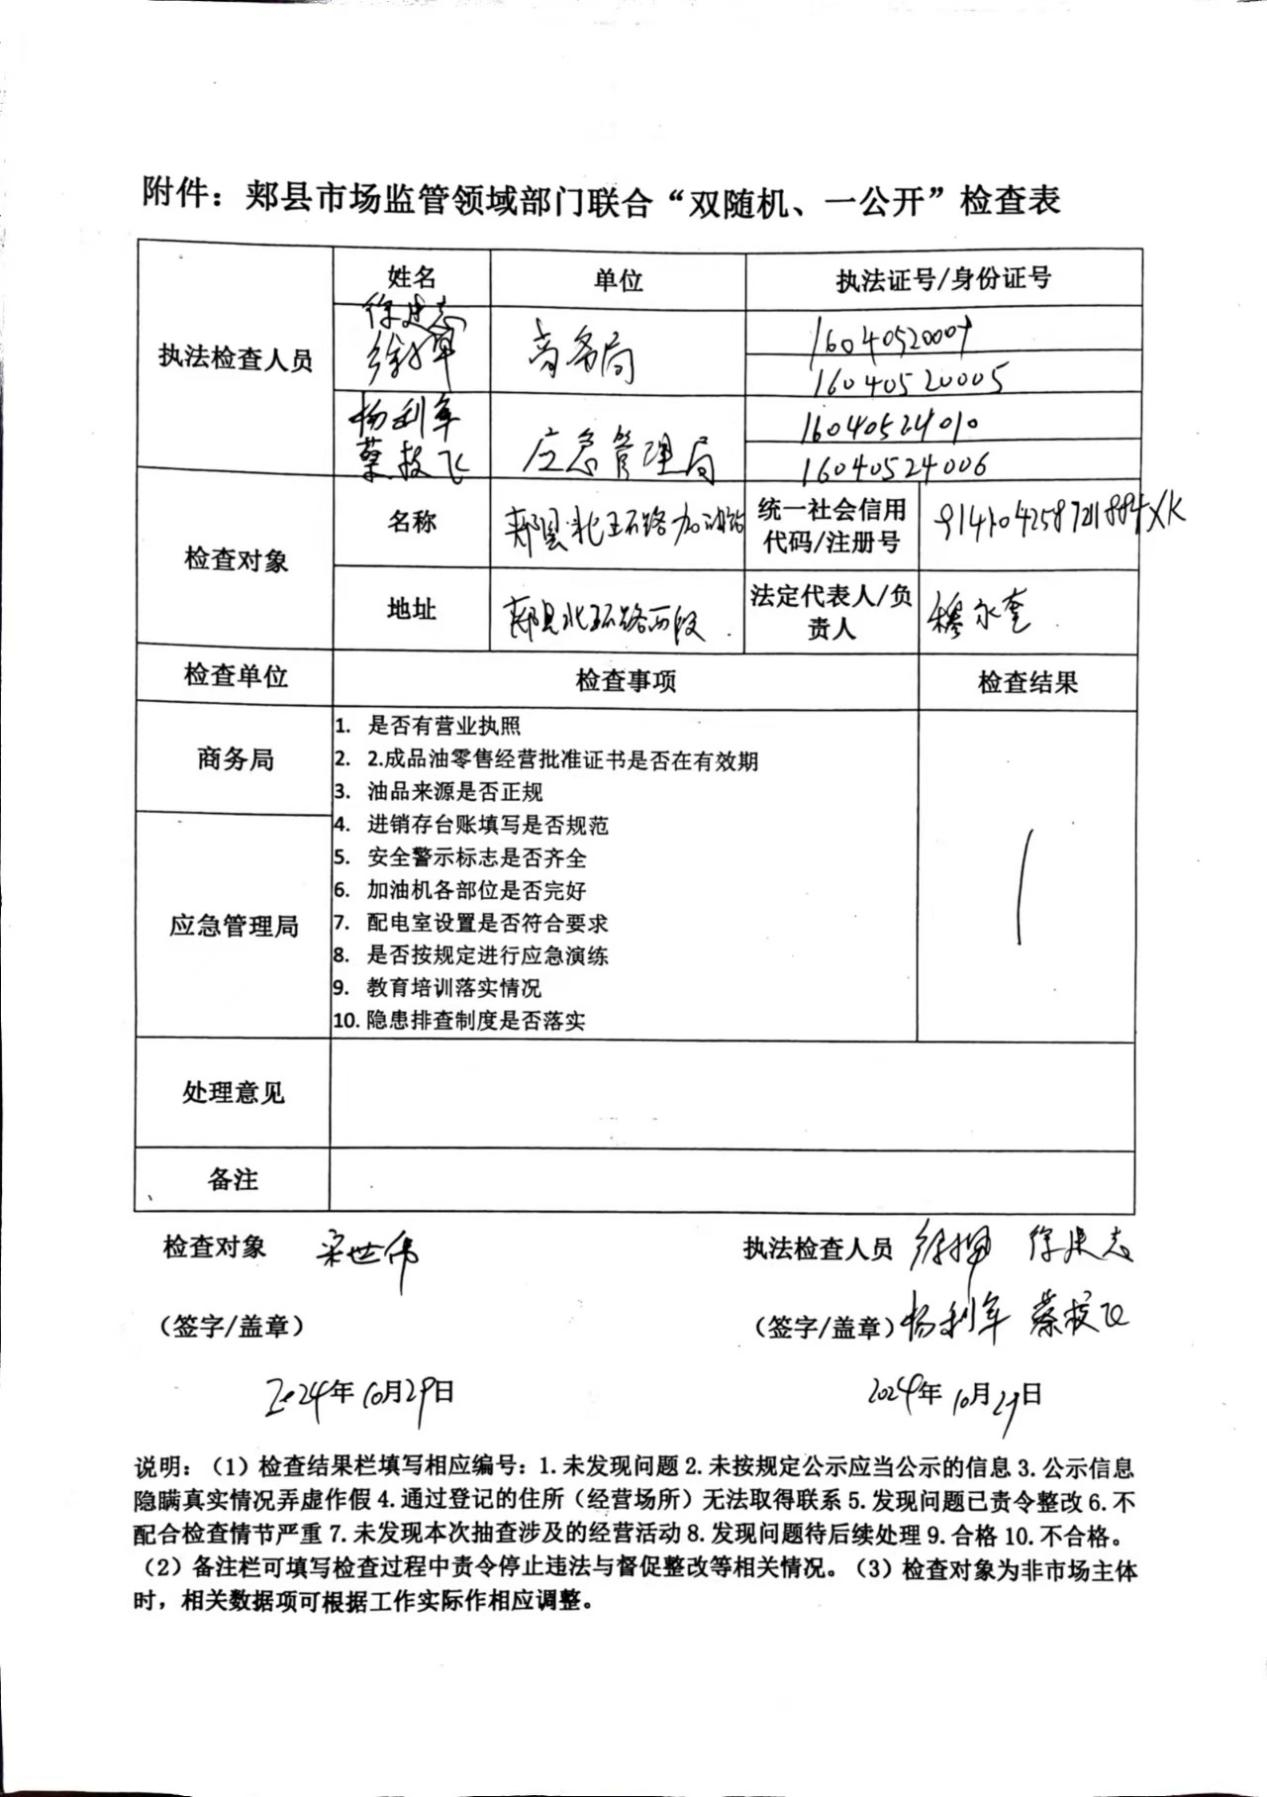 附件：郏县市场监管领域部门联合“双随机、一公开”检查表
执法检查人员
姓名
单位
执法证号/身份证号
徐建志
商务局
16040520005
杨利军
应急管理局
16040524010
16040524006
检查对象
名称
郏县北环路加油站
统一社会信用
代码/注册号
地址
郏县北环路西段
法定代表人/负
责人
穆永奎
检查单位
检查事项
检查结果
商务局
应急管理局
1. 是否有营业执照
2. 2.成品油零售经营批准证书是否在有效期
3. 油品来源是否正规
4. 进销存台账填写是否规范
5. 安全警示标志是否齐全
6. 加油机各部位是否完好
7. 配电室设置是否符合要求
8. 是否按规定进行应急演练
9. 教育培训落实情况
10. 隐患排查制度是否落实
1
处理意见
备注
检查对象 宋世伟
执法检查人员 徐建志
（签字/盖章）
（签字/盖章）杨利军
2024年10月29日
2024年10月29日
说明：（1）检查结果栏填写相应编号：1.未发现问题 2.未按规定公示应当公示的信息 3.公示信息
隐瞒真实情况弄虚作假 4.通过登记的住所（经营场所）无法取得联系 5.发现问题已责令整改 6.不
配合检查情节严重 7.未发现本次抽查涉及的经营活动 8.发现问题待后续处理 9.合格 10.不合格。
（2）备注栏可填写检查过程中责令停止违法与督促整改等相关情况。（3）检查对象为非市场主体
时，相关数据项可根据工作实际作相应调整。